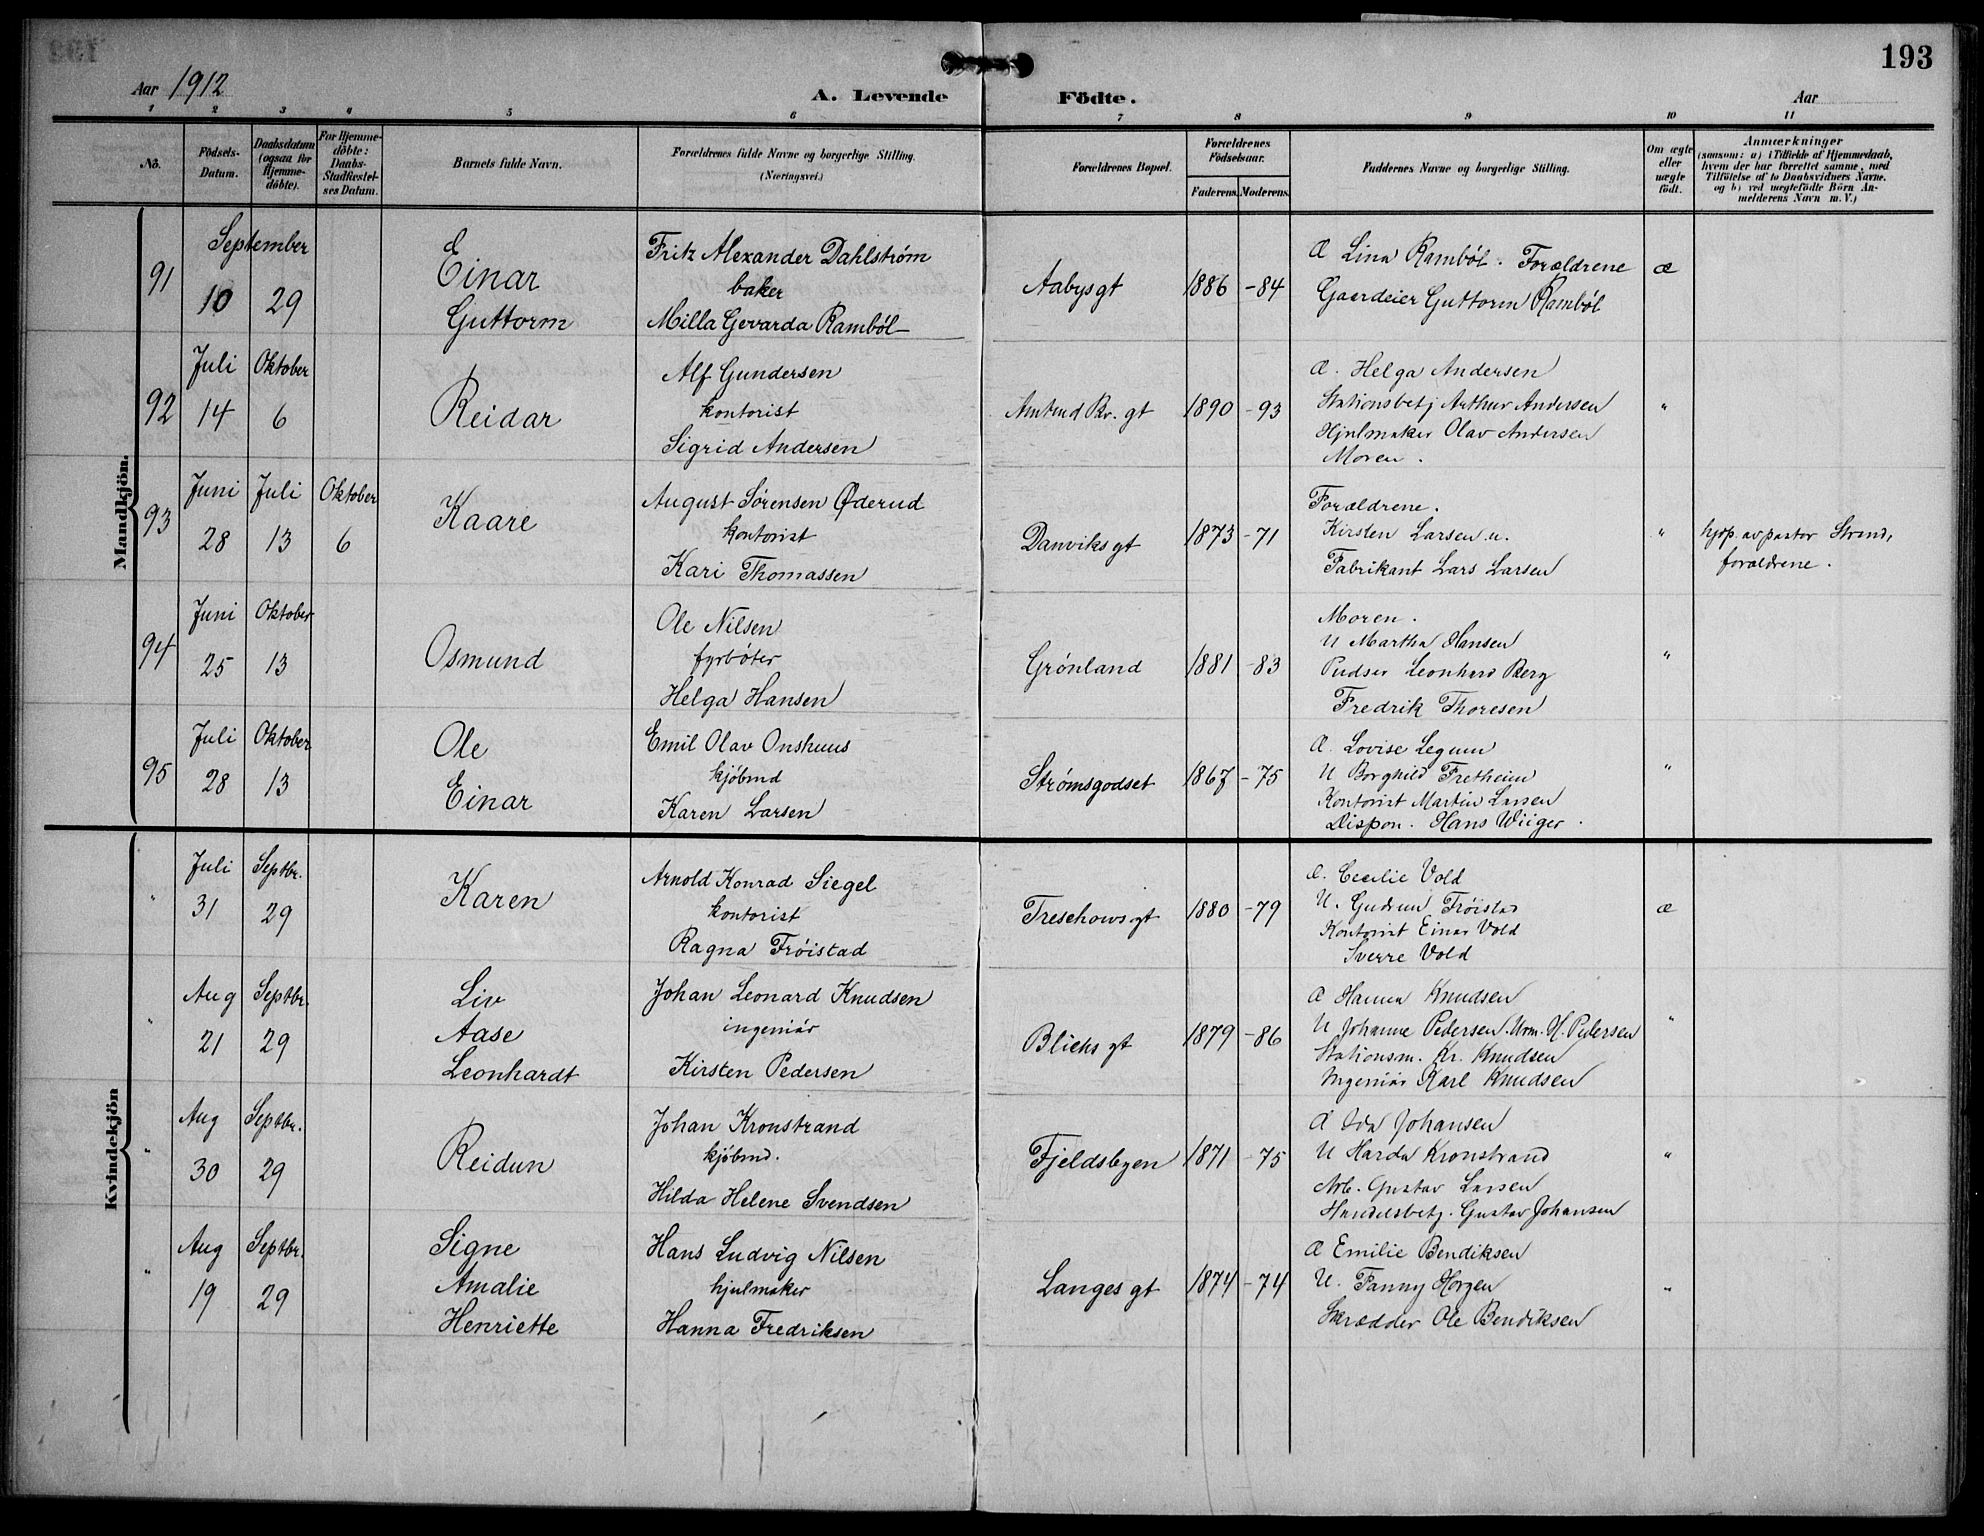 193
Aar 1912
A. Levende Födte.
Aar
1 2 3 4 5 6 7 8 9 10 11
No.
Födsels-Datum.
Daabsdatum (ogsaa for Hjemme-döbte).
For Hjemme-döbte: Daabs-Stadfæstel-ses Datum.
Barnets fulde Navn.
Forældrenes fulde Navne og borgerlige Stilling.
(Næringsvei.)
Forældrenes Bopæl.
Forældrenes Födselsaar.
Faderens. Moderens.
Faddernes Navne og borgerlige Stilling.
Om ægte eller uægte födt.
Anmærkninger
(saasom: a) i Tilfælde af Hjemmedaab,
hvem der har forrettet samme, med
Tilföielse af to Daabsvidners Navne.
og b) ved uægtefödte Börn An-
melderens Navn m. V.)
Mandkjön.
91
September
10 29
Einar
Guttorm
Fritz Alexander Dahlstrøm
baker
Milla Gevarda Rambøl
Aabysgt
1886 -84
Æ Lina Rambøl. Forældrene
Gaardeier Guttorm Rambøl
æ
92
Juli Oktober
14 6
Reidar
Alf Gundersen
kontorist
Sigrid Andersen
Amtmd Bl. gt
1890 -93
Æ. Helga Andersen
Stationsbetj Arthur Andersen
Hjulmaker Olav Andersen
Moren.
"
93
Juni Juli Oktober
28 13 6
Kaare
August Sørensen Øderud
kontorist
Kari Thomassen
Danviksgt
1873 -71
Forældrene.
Kirsten Larsen u.
Fabrikant Lars Larsen
"
hjdp. av pastor Strand,
forældrene.
94
Juni Oktober
25 13
Osmund
Ole Nilsen
fyrbøter
Helga Hansen
Grønland
1881 -83
Moren.
U Martha Hansen
Pudser Leonhard Berg
Fredrik Thoresen
"
95
Juli Oktober
28 13
Ole
Einar
Emil Olav Onshuus
kjøbmd
Karen Larsen
Strømsgodset
1867 -75
Æ. Lovise Legum
U Borghild Fretheim
Kontorist Martin Larsen
Dispon. Hans Wiiger.
"
Kvindekjön
"
Juli Septbr.
31 29
Karen
Arnold Konrad Siegel
kontorist
Ragna Frøistad
Treschowsgt
1880 -79
Æ. Cecilie Vold
U. Gudrun Frøistad
Kontorist Einar Vold
Sverre Vold
æ
"
Aug Septbr.
21 29
Liv
Aase
Leonhardt
Johan Leonard Knudsen
ingeniør
Kirsten Pedersen
Blichsgt
1879 -86
Æ Hanna Knudsen
U Johanne Pedersen. Urm. H. Pedersen
Stationsm. Kr. Knudsen
Ingeniør Karl Knudsen
"
"
Aug Septbr.
30 29
Reidun
Johan Kronstrand
kjøbmd.
Hilda Helene Svendsen
Fjeldsbyen
1871 -75
Æ Ida Johansen
U Harda Kronstrand
Arb. Gustav Larsen
Handelsbetj. Gustav Johansen
"
"
Aug Septbr.
19 29
Signe
Amalie
Henriette
Hans Ludvig Nilsen
hjulmaker
Hanna Fredriksen
Langesgt
1874 -74
Æ Emilie Bendiksen
U. Fanny Horgen
Skrædder Ole Bendiksen
"